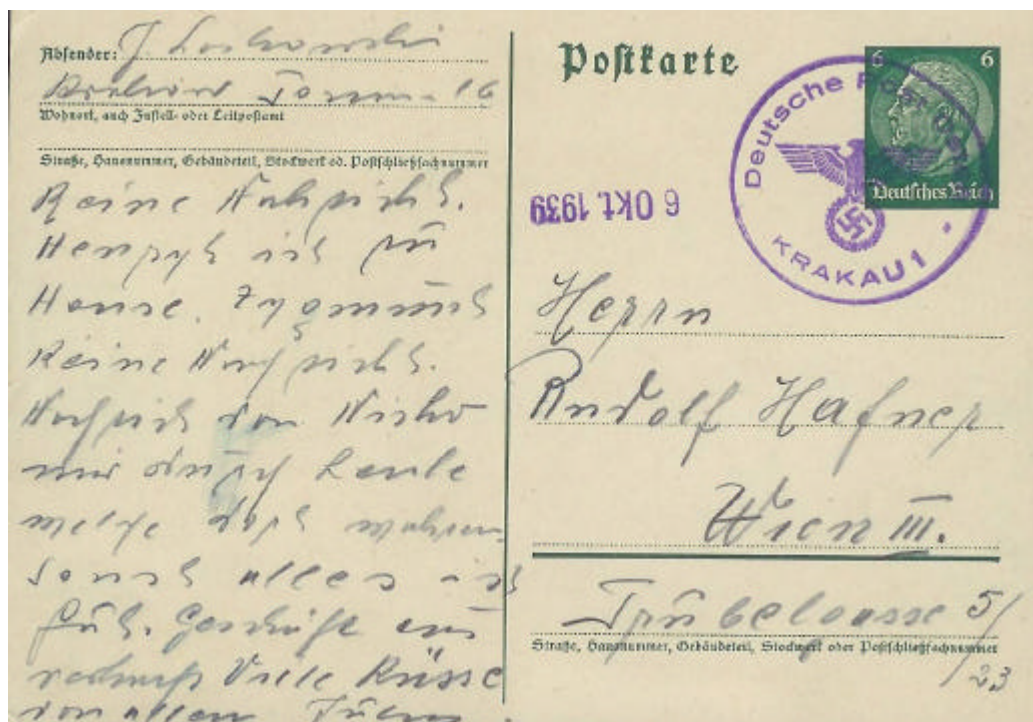 Absender: J. Loskowski
Wohnort, auch Zustell- oder Leitpostamt
Straße, Hausnummer, Gebäudeteil, Stockwerk od. Postschließfachnummer
Keine Nachricht.
Henryk ist zu
Hause. Zygmunt
Keine Nachricht.
Nachricht von Nisko
nur durch Leute
welche dort waren
sonst alles ist
gut. Geschäfte
Viele Küsse
von allen
Postkarte
6 6
Deutsches Reich
Deutsche Post Osten
KRAKAU 1
6 OKT. 1939
Herrn
Rudolf Hafner
Wien III.
5/
Straße, Hausnummer, Gebäudeteil, Stockwerk oder Postschließfachnummer
23